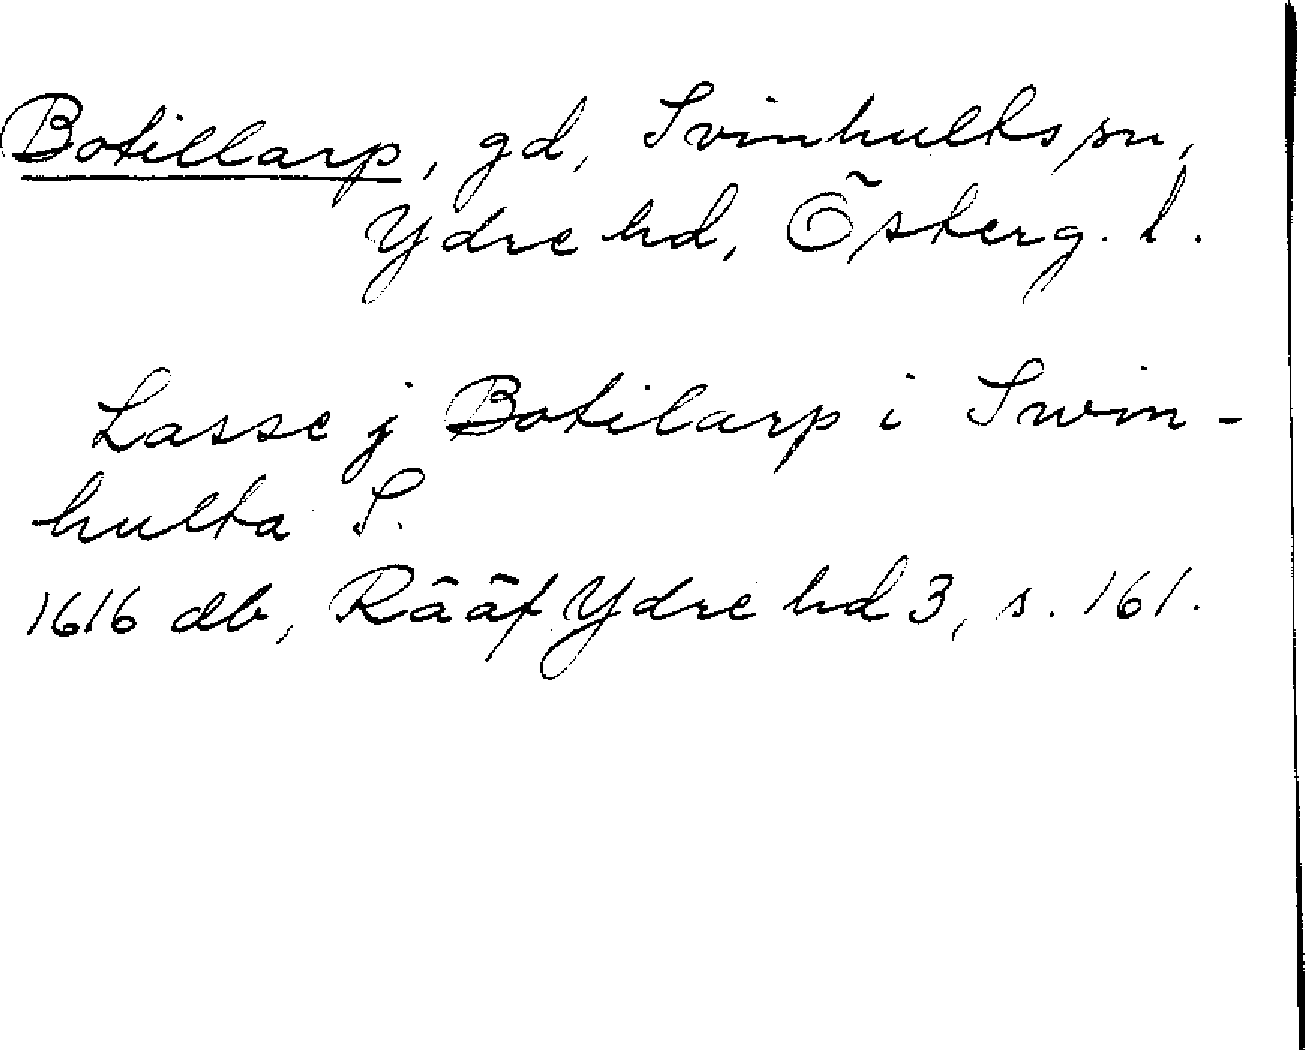 Botillarp, gd, Svinhults sn,
Ydre hd, Österg. l.
Lasse j Botilarp i Swin-
hulta S.
1616 db, Rääf Ydre hd 3, s. 161.